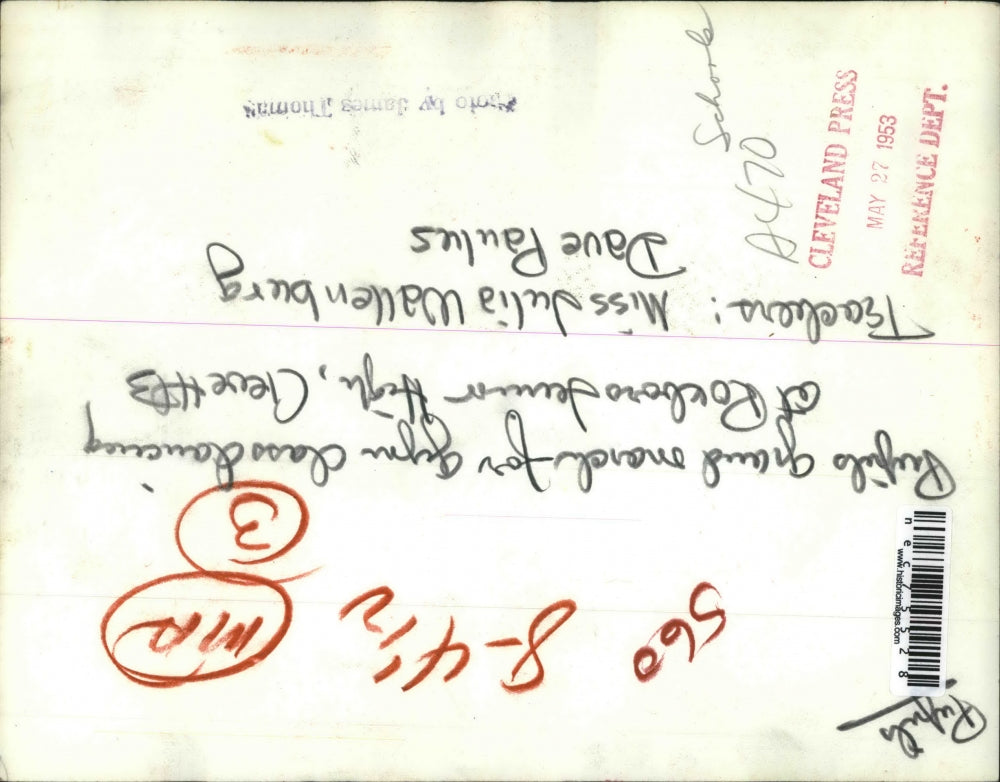 Pupils
560
8-4 1/2
3
Pupils grand march for gym class dancing
at Roxboro Junior High, Cleve Hts
Teachers: Miss Julia Wallenburg
Dave Paulus
Photo by James Thomas
Schools
A470
CLEVELAND PRESS
MAY 27 1953
REFERENCE DEPT.
www.historicimages.com
nec75528